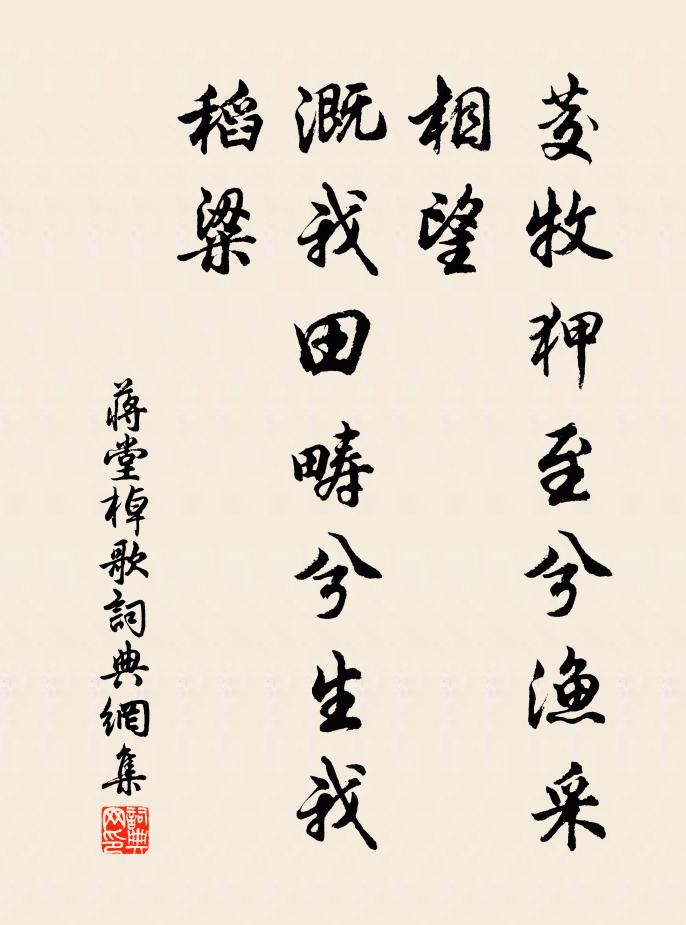 茭牧狎至兮漁采
相望
溉我田疇兮生我
稻粱
蔣堂棹歌詞典網集
詞典
网印